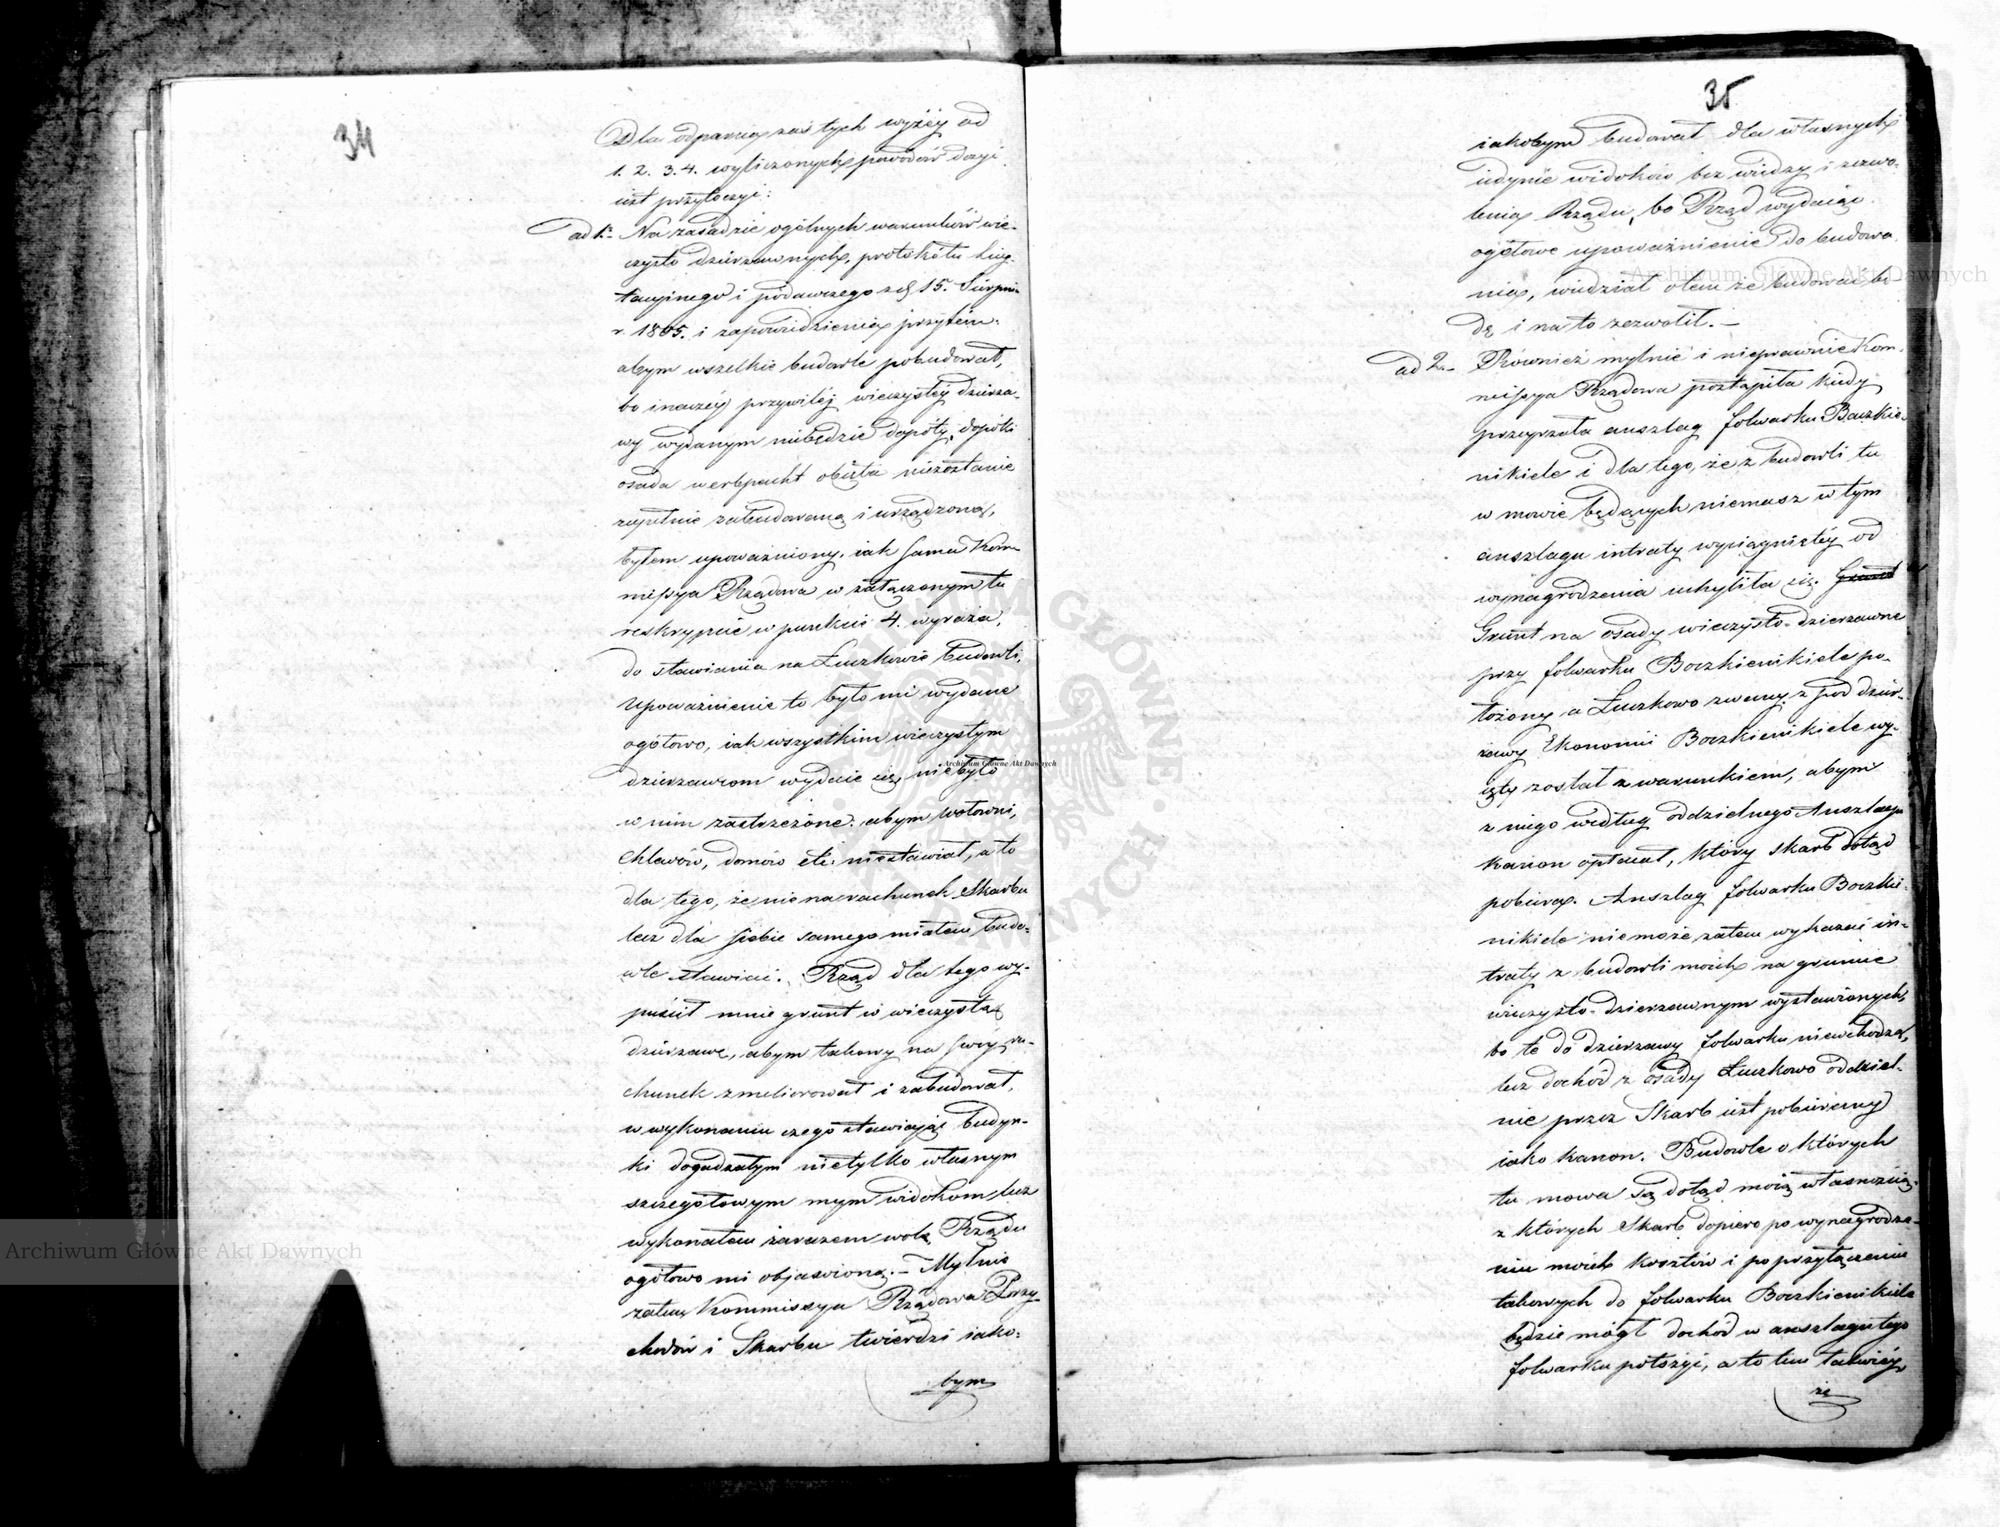 34
Dla odparcia zaś tych wyżéy ad
1. 2. 3. 4. wyliczonych powodów dosyć
iest przytoczyć:
ad 1. Na zasadzie ogólnych warunków wie-
czysto dzierzawnych, protokółu licy-
tacyinego i podawczego z d. 15. Sierpnia
r. 1805. i zapowiedzienia przytém:
abym wszelkie budowle pobudował,
bo inaczéy przywiléj wieczystéy dzierza-
wy wydanym niebędzie dopóty, dopóki
osada w erbpacht obięta niezostanie
zupełnie zabudowaną i urządzoną,
byłem upoważniony, iak sama Kom-
missya Rządowa w załączonym tu
reskrypcie w punkcie 4. wyraża,
do stawiania na Łuczkowie budowli,
Upoważnienie to było mi wydane
ogółowo, iak wszystkim wieczystym
dzierzawcom wydaie się, niebyło
w nim zastrzeżone: abym wołowni,
Chlewów, domów etc: niestawiał, a to
dla tego, że nie na rachunek Skarbu
lecz dla siebie samego miałem budo-
wle stawiać. Rząd dla tego wy-
puścił mnie grunt w wieczystą
dzierzawę, abym takowy na swóy ra-
chunek zmeliorował i zabudował,
w wykonaniu czego stawiaiąc budyn-
ki dogadzałym nietylko własnym
szczegółowym mym widokom, lecz
wykonałem zarazem wolą Rządu
ogółowo mi objawioną. - Mylnie
zatem Kommissya Rządowa Przy-
chodów i Skarbu twierdzi iako-
bym
35
iakobym budował dla własnych
iedynie widoków bez wiedzy i zezwo-
lenia Rządu, bo Rząd wydaiąc
ogółowe upoważnienie do budowa-
nia, wiedział otem że budować bę-
dę i na to zezwolił. -
ad 2. Również mylnie i nieprawnie Kom-
missya Rządowa postąpiła kiedy
przeyrzała anszlag folwarku Boczkie-
nikiele i dla tego, że z budowli tu
w mowie będących niemasz w tym
anszlagu intraty wyciągniętéy od
wynagrodzenia uchyliła się. Grunt
Grunt na osady wieczysto-dzierzawne
przy folwarku Boczkienikiele po-
łożony a Łuczkowo zwany z pod dzier-
żawy Ekonomii Boczkienikiele wy-
ięty został z warunkiem, abym
z niego według oddzielnego Anszlagu
kanon opłacał, który skarb dotąd
pobiera. Anszlag folwarku Boczkie-
nikiele niemoże zatem wykazać in-
traty z budowli moich na gruncie
wieczysto-dzierzawnym wystawionych,
bo te do dzierzawy folwarku niewchodzą,
lecz dochód z osady Łuczkowo oddziel-
nie przez Skarb iest pobierany
iako kanon. Budowle o których
tu mowa są dotąd moią własnością,
z których Skarb dopiero po wynagrodze-
niu moich kosztów i po przyłączeniu
takowych do folwarku Boczkienikiele
będzie mógł dochód w anszlagu tego
folwarku położyć, a to tem łatwiéy,
że
Archiwum Główne Akt Dawnych
Archiwum Główne Akt Dawnych
Archiwum Główne Akt Dawnych